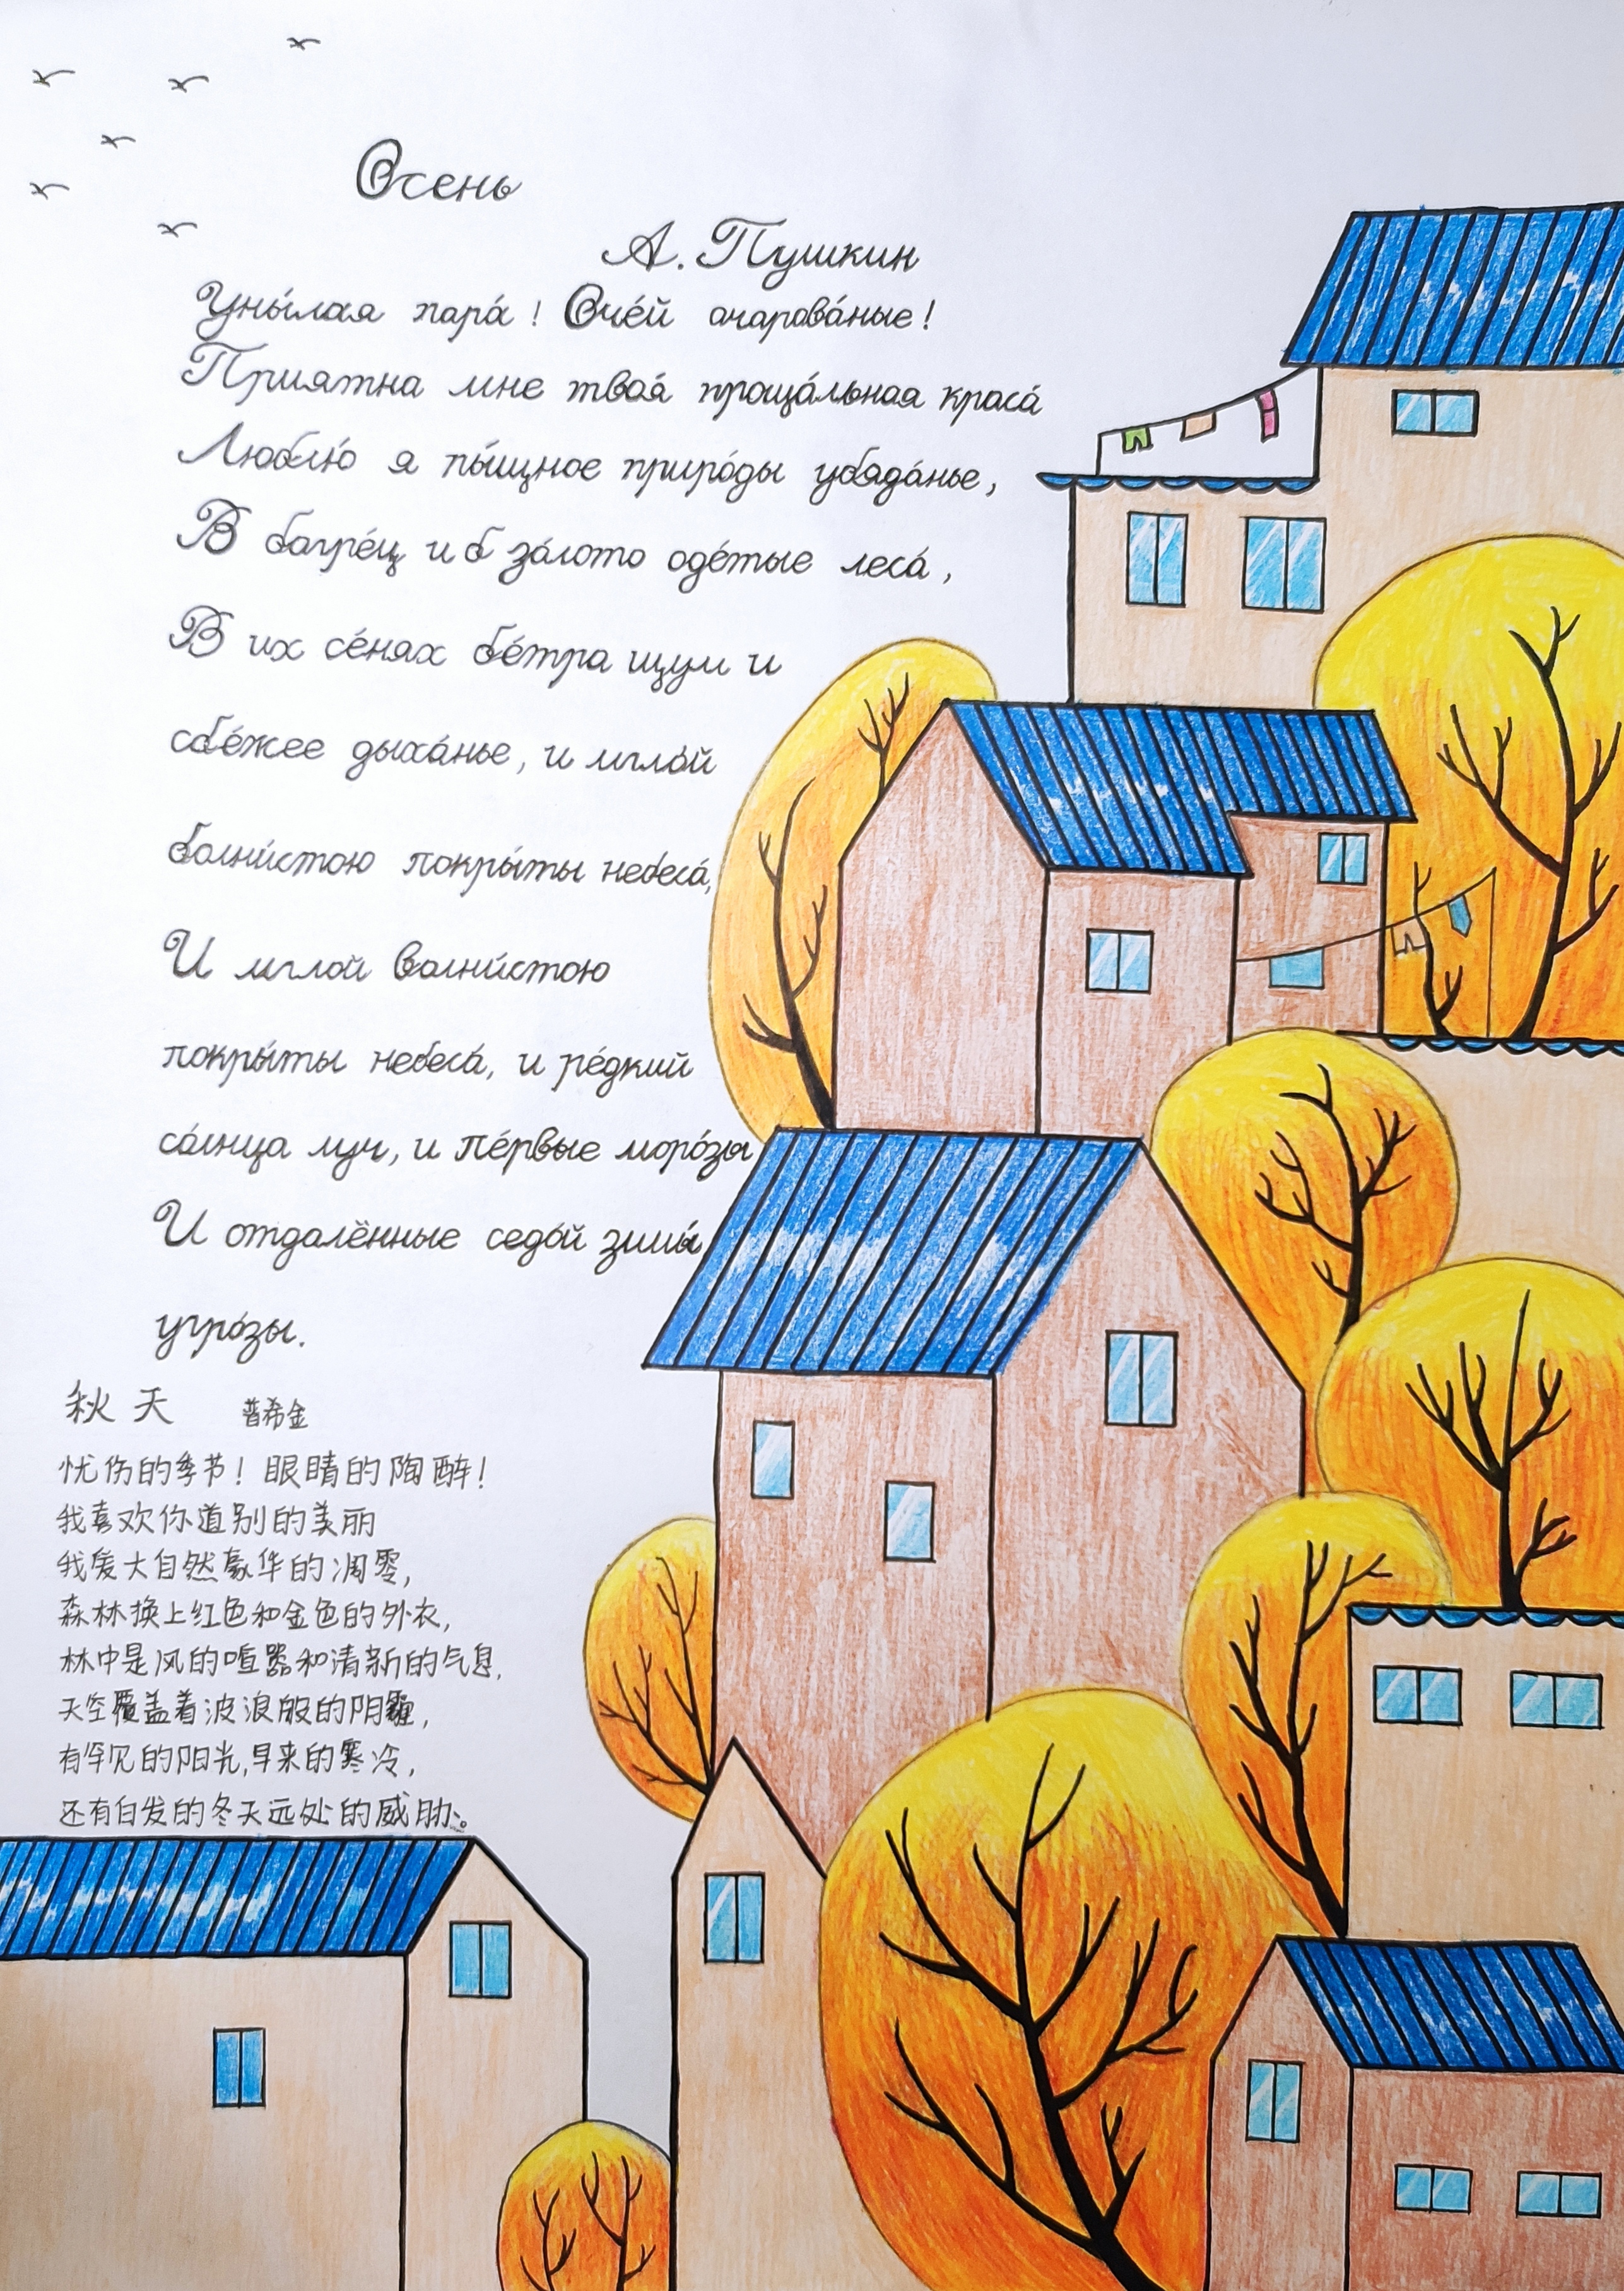 Осень
А. Пушкин
Уны́лая пара́! Оче́й очарова́ные!
Приятна мне твоя́ проща́льная краса́
Люблю́ я пы́щное приро́ды убяда́нье,
В багре́ц и в за́лото оде́тые леса́,
В их се́нях ве́тра щум и
све́жее дыха́нье, и мгло́й
волни́стою покры́ты небеса́,
И мглой волни́стою
покры́ты небеса́, и ре́дкий
са́лнца луч, и пе́рвые моро́зы
И отдалённые седо́й зимы́
угро́зы.
秋天 普希金
忧伤的季节！眼睛的陶醉！
我喜欢你道别的美丽
我爱大自然豪华的凋零，
森林换上红色和金色的外衣，
林中是风的喧嚣和清新的气息，
天空覆盖着波浪般的阴霾，
有罕见的阳光，早来的寒冷，
还有白发的冬天远处的威胁。